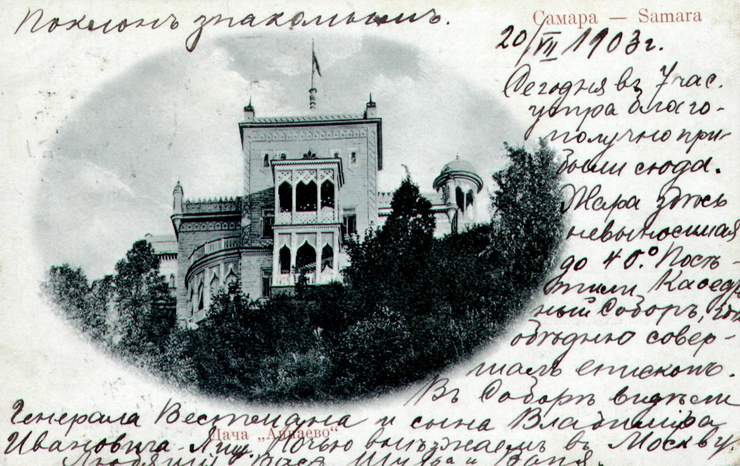 Поклонъ знакомымъ.
Самара — Samara
20/VII 1903 г.
Сегодня въ 7 час.
утра благо-
получно при-
были сюда.
Жара здѣсь
невыносимая
до 40°. Посѣ-
тили Каѳед
ный Соборъ, гдѣ
обѣдню совер-
шалъ епископъ.
Въ Соборѣ видѣли
Генерала Вестмана и сына Владиміра
Дача „Аннаево“
Ивановича. Ночью выѣзжаемъ въ Москву
Любящій Васъ и Ваня